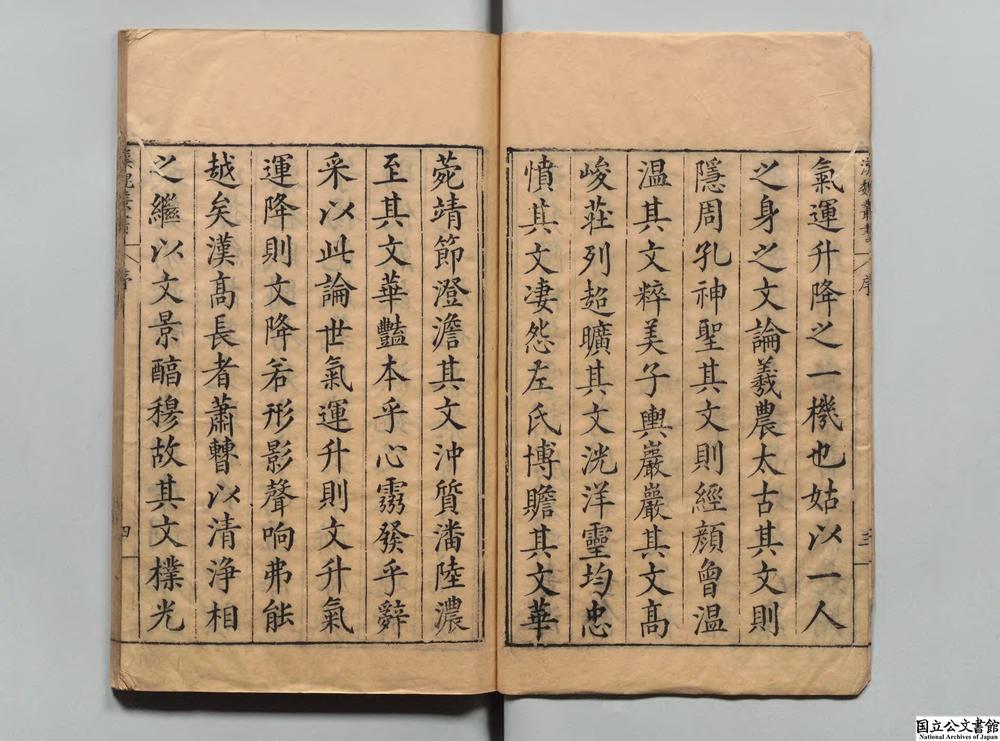 漢魏叢書 序 三
氣運升降之一機也姑以一人
之身之文論羲農太古其文則
隱周孔神聖其文則經顔曾溫
温其文粹美子輿巖巖其文髙
峻莊列超曠其文洸洋靈均忠
憤其文凄怨左氏博贍其文華
菀靖節澄澹其文沖質潘陸濃
至其文華豔本乎心靈發乎辭
采以此論世氣運升則文升氣
運降則文降若形影聲响弗能
越矣漢髙長者蕭曹以清浄相
之繼以文景醕穆故其文樸光
漢魏叢書 序 四
国立公文書館
National Archives of Japan